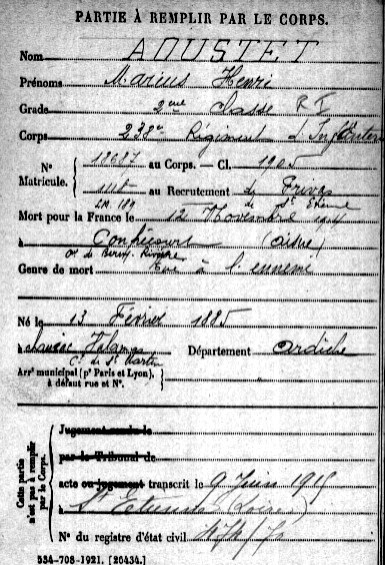 PARTIE À REMPLIR PAR LE CORPS.
Nom AOUSTET
Prénoms Marius Henri
Grade 2eme classe R I
Corps 238e Régiment d'Infanterie
N° Matricule. au Corps. — Cl. 1905
au Recutement Privas
Mort pour la France le 12 Novembre 1914
à (Aisne)
Genre de mort Tué à l'ennemi
Né le 13 Février 1885
à Département Ardèche
Arrt municipal (pr Paris et Lyon), à défaut rue et N°.
Cette partie n'est pas à remplir par le Corps.
Jugement rendu le
par le Tribunal de
acte ou jugement transcrit le 9 Juin 1915
à St Etienne (Loire)
N° du registre d'état civil
534-708-1921. [20434.]